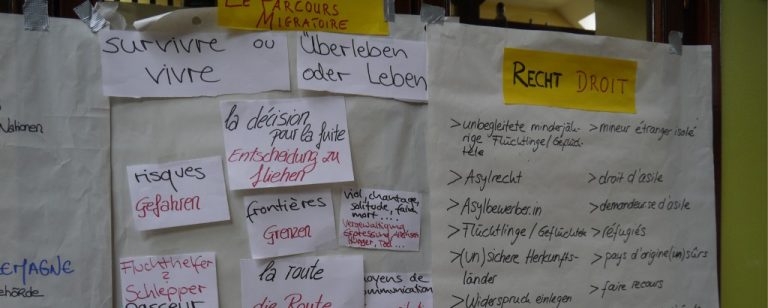 Nationen
EMAGNE
ehörde
LE PARCOURS
MIGRATOIRE
survivre ou
vivre
Überleben
oder Leben
la décision
pour la fuite
Entscheidung zu
fliehen
risques
Gefahren
frontières
Grenzen
viol, chantage,
solitude, faim
mort....
Vergewaltigung
Erpressung,
Hunger, Tod...
Fluchthelfer
Schlepper
passeur
la route
die Route
moyens de
communication
RECHT DROIT
> unbegleitete minderjäh-
rige Flüchtlinge/Geflüch-
tete
> Asylrecht
> Asylbewerber.in
> Flüchtlinge/Geflüchteten
> (un)sichere Herkunfts-
länder
> Widerspruch einlegen
> mineur étranger isolé
> droit d'asile
> demandeur.se d'asile
> réfugiés
> pays d'origine (un)sûrs
> faire recours